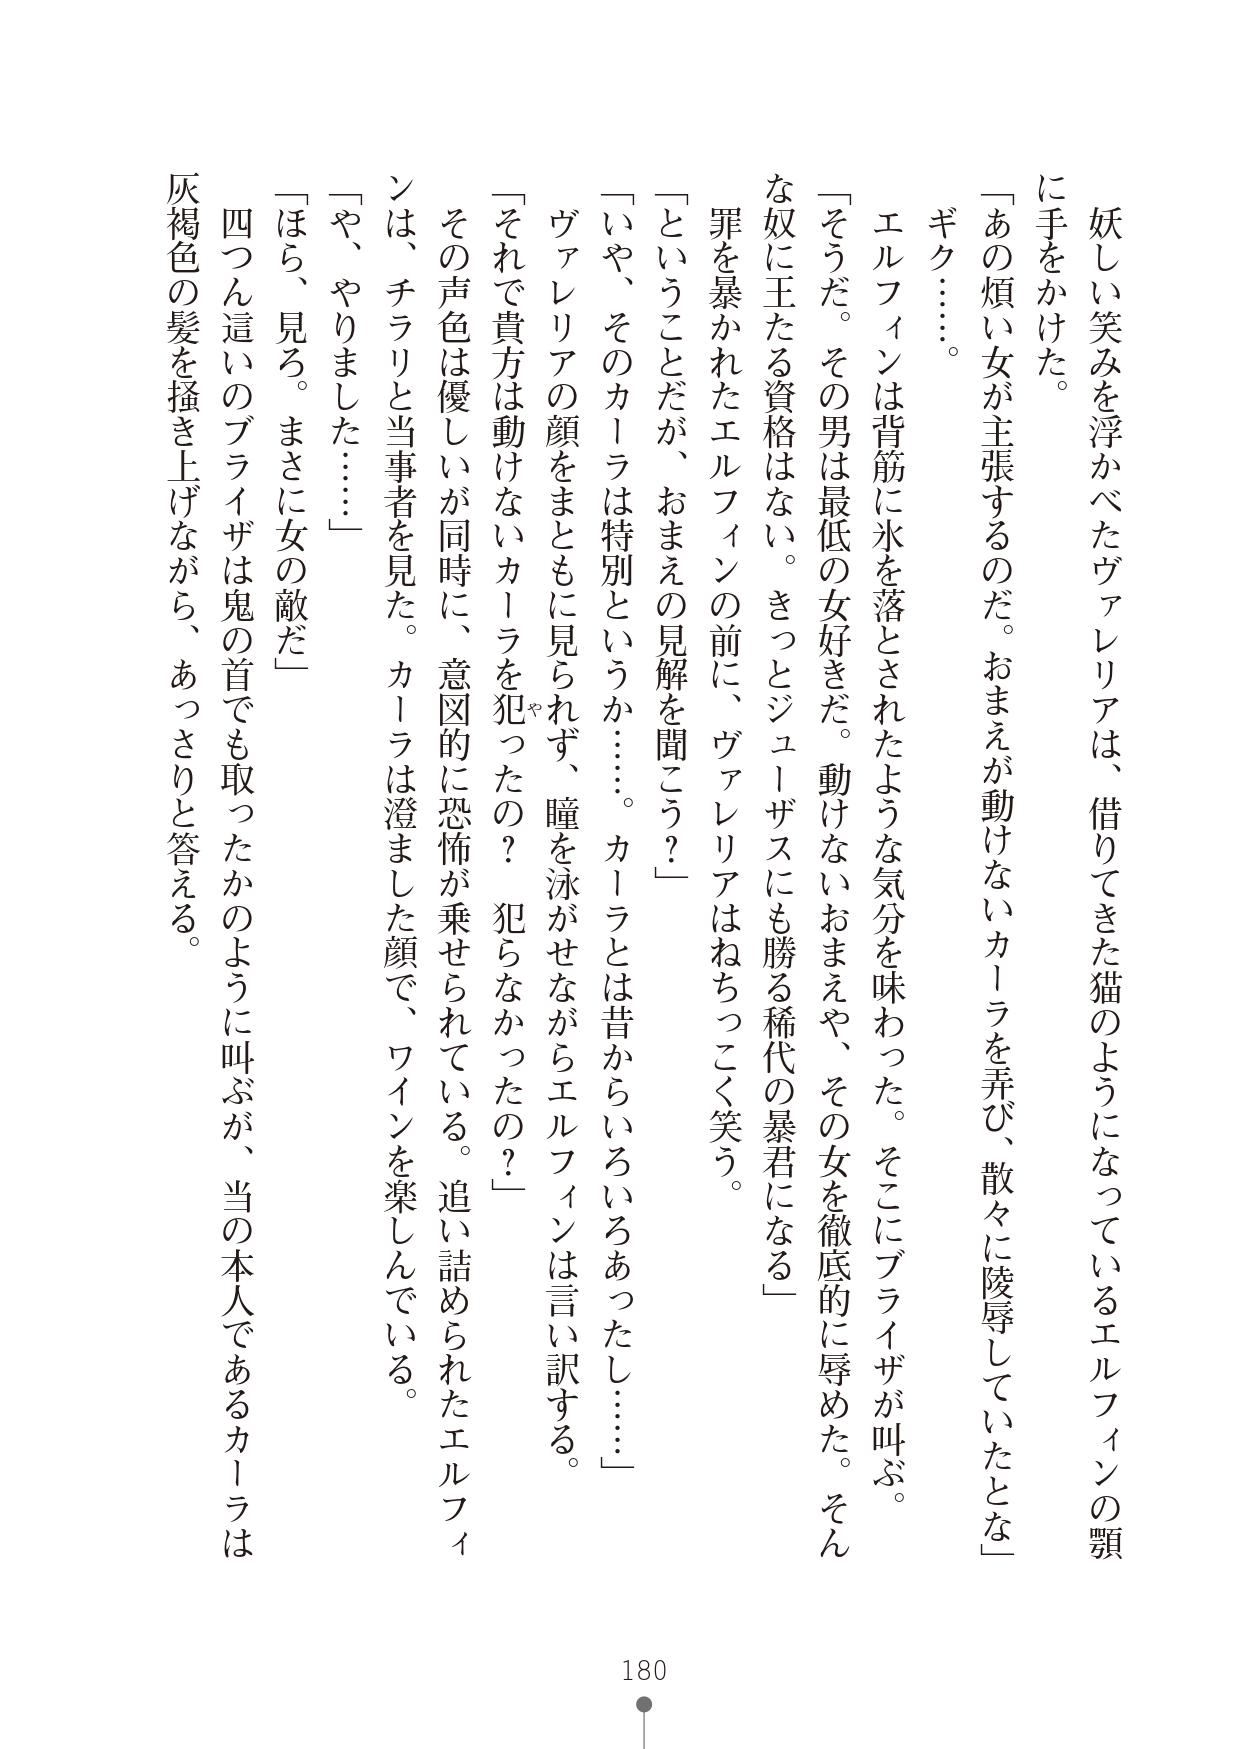 妖しい笑みを浮かべたヴァレリアは、借りてきた猫のようになっているエルフィンの顎
に手をかけた。
「あの煩い女が主張するのだ。おまえが動けないカーラを弄び、散々に陵辱していたとな」
ギク……。
エルフィンは背筋に氷を落とされたような気分を味わった。そこにブライザが叫ぶ。
「そうだ。その男は最低の女好きだ。動けないおまえや、その女を徹底的に辱めた。そん
な奴に王たる資格はない。きっとジューザスにも勝る稀代の暴君になる」
罪を暴かれたエルフィンの前に、ヴァレリアはねちっこく笑う。
「ということだが、おまえの見解を聞こう？」
「いや、そのカーラは特別というか……。カーラとは昔からいろいろあったし……」
ヴァレリアの顔をまともに見られず、瞳を泳がせながらエルフィンは言い訳する。
「それで貴方は動けないカーラを犯やったの？　犯らなかったの？」
その声色は優しいが同時に、意図的に恐怖が乗せられている。追い詰められたエルフィ
ンは、チラリと当事者を見た。カーラは澄ました顔で、ワインを楽しんでいる。
「や、やりました……」
「ほら、見ろ。まさに女の敵だ」
四つん這いのブライザは鬼の首でも取ったかのように叫ぶが、当の本人であるカーラは
灰褐色の髪を掻き上げながら、あっさりと答える。
180